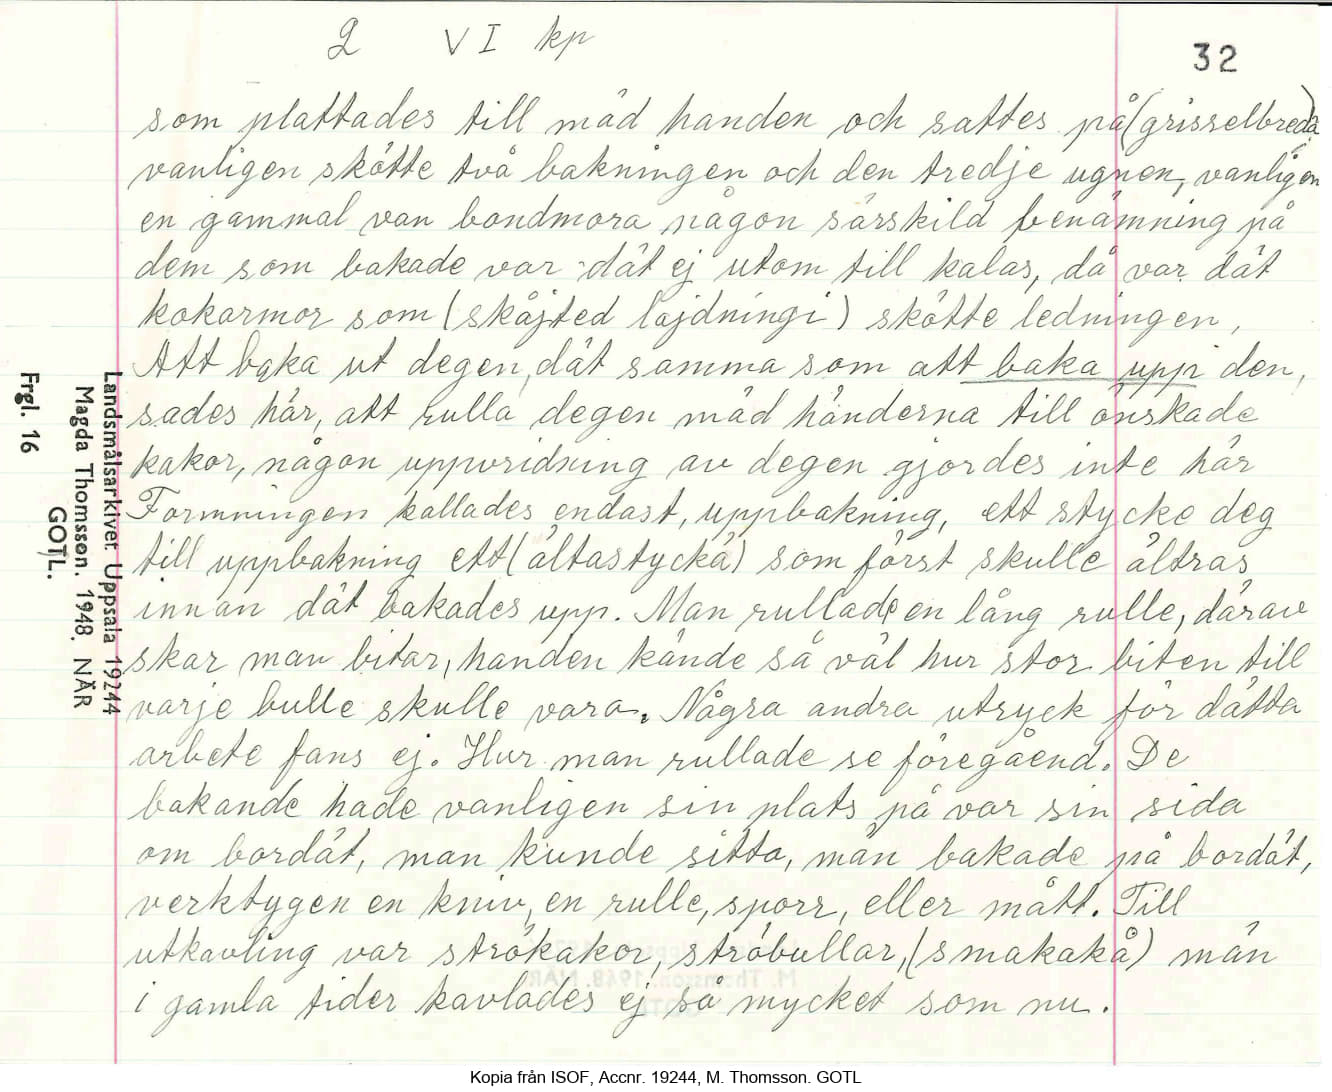 2 VI kp
32
som plattades till mäd handen och sattes på (grisselbredå)
vanligen skötte två bakningen och den tredje ugnen, vanligen
en gammal van bondmora någon särskild benämning på
dem som bakade var dät ej utom till kalas, då var dät
kokarmor som (skåjted lajdningi) skötte ledningen,
Att baka ut degen, dät samma som att baka upp den,
sades här, att rulla degen mäd händerna till önskade
kakor, någon uppvridning av degen gjordes inte här
Formningen kallades endast, uppbakning, ett stycke deg
till uppbakning ett (ältastyckä) som först skulle ältras
innan dät bakades upp. Man rullade en lång rulle, därav
skar man bitar, handen kände så väl hur stor biten till
varje bulle skulle vara. Några andra utryck för dätta
arbete fans ej. Hur man rullade se föregåend. De
bakande hade vanligen sin plats på var sin sida
om bordät, man kunde sitta, män bakade på bordät,
verktygen en kniv, en rulle, sporr, eller mått. Till
utkavling var strökakor, ströbullar, (smakakå) män
i gamla tider kavlades ej så mycket som nu.
Landsmålsarkivet. Uppsala 19244
Magda Thomsson. 1948. NÄR
GOTL.
Frgl. 16
Kopia från ISOF, Accnr. 19244, M. Thomsson. GOTL